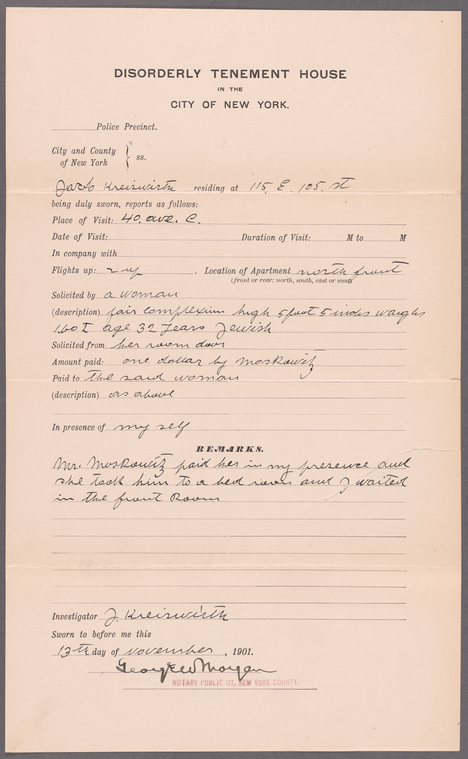 DISORDERLY TENEMENT HOUSE
IN THE
CITY OF NEW YORK.
Police Precinct.
City and County
of New York } ss.
Jacob Kreiswirth residing at 115 E. 105. st
being duly sworn, reports as follows:
Place of Visit: 40. ave. C.
Date of Visit: Duration of Visit: M to M
In company with
Flights up: 2 up. Location of Apartment north front
(front or rear: north, south, east or west)
Solicited by a woman
(description) fair complexion high 5 foot 5 inches weighs
160 age 32 years Jewish
Solicited from her room door
Amount paid: one dollar by Moskowitz
Paid to the said woman
(description) as above
In presence of my self
REMARKS.
Mr. Moskowitz paid her in my presence and
she took him to a bed room and I waited
in the front Room
Investigator J. Kreiswirth
Sworn to before me this
13th day of november, 1901.
George W Morgan
NOTARY PUBLIC NEW YORK COUNTY.